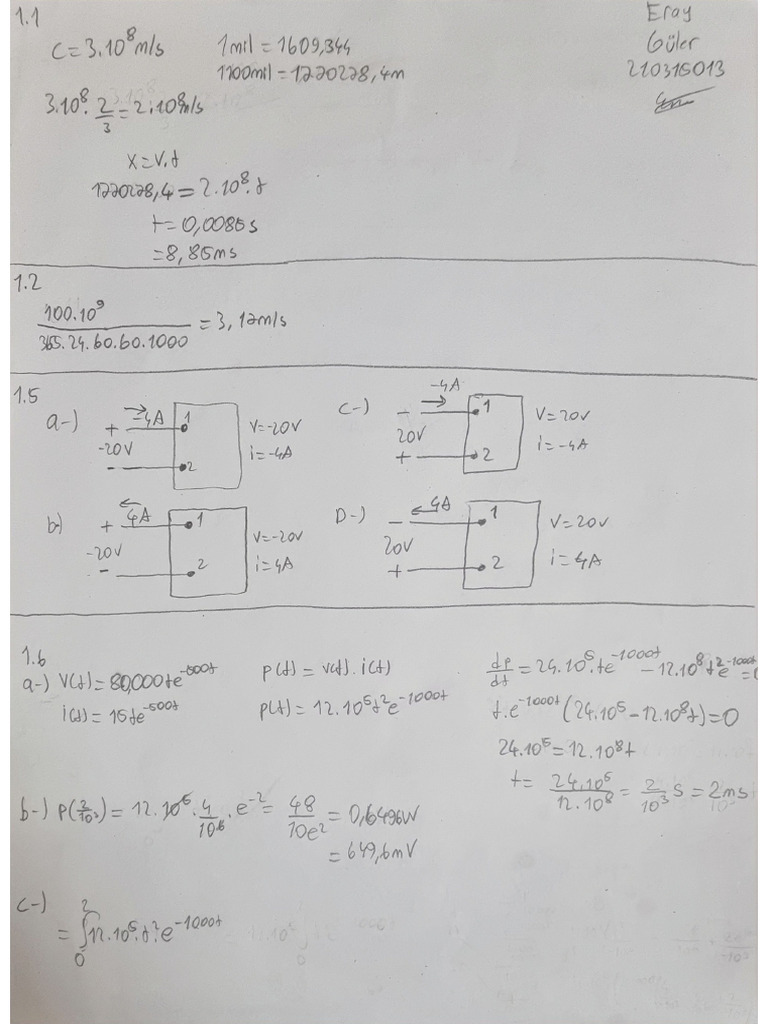 1.1
Eray
Güler
210315013
c = 3.10⁸ m/s
1 mil = 1609,344
1100mil = 1770278,4m
3.10⁸. 2/3 = 2.10⁸ m/s
x = v.t
1770278,4 = 2.10⁸.t
t = 0,0085 s
= 8,85ms
1.2
100.10⁹ / 365.24.60.60.1000 = 3,17m/s
1.5
a-) + -4A 1
-20V
- 2
V = -20V
i = -4A
c-) - -4A 1
20V
+ 2
V = 20V
i = -4A
b) + 4A 1
-20V
- 2
V = -20V
i = 4A
D-) - 4A 1
20V
+ 2
V = 20V
i = 4A
1.6
a-) V(t) = 80,000te⁻⁵⁰⁰ᵗ
i(t) = 15te⁻⁵⁰⁰ᵗ
p(t) = v(t).i(t)
p(t) = 12.10⁵t²e⁻¹⁰⁰⁰ᵗ
dp/dt = 24.10⁵.te⁻¹⁰⁰⁰ᵗ - 12.10⁸t²e⁻¹⁰⁰⁰ᵗ = 0
t.e⁻¹⁰⁰⁰ᵗ(24.10⁵ - 12.10⁸t) = 0
24.10⁵ = 12.10⁸t
t = 24.10⁵ / 12.10⁸ = 2/10³ s = 2ms
b-) P(2/10³) = 12.10⁵. 4/10⁶ . e⁻² = 48/10e² = 0,6496W
= 649,6mV
c-)
= ∫₀² 12.10⁵.t².e⁻¹⁰⁰⁰ᵗ